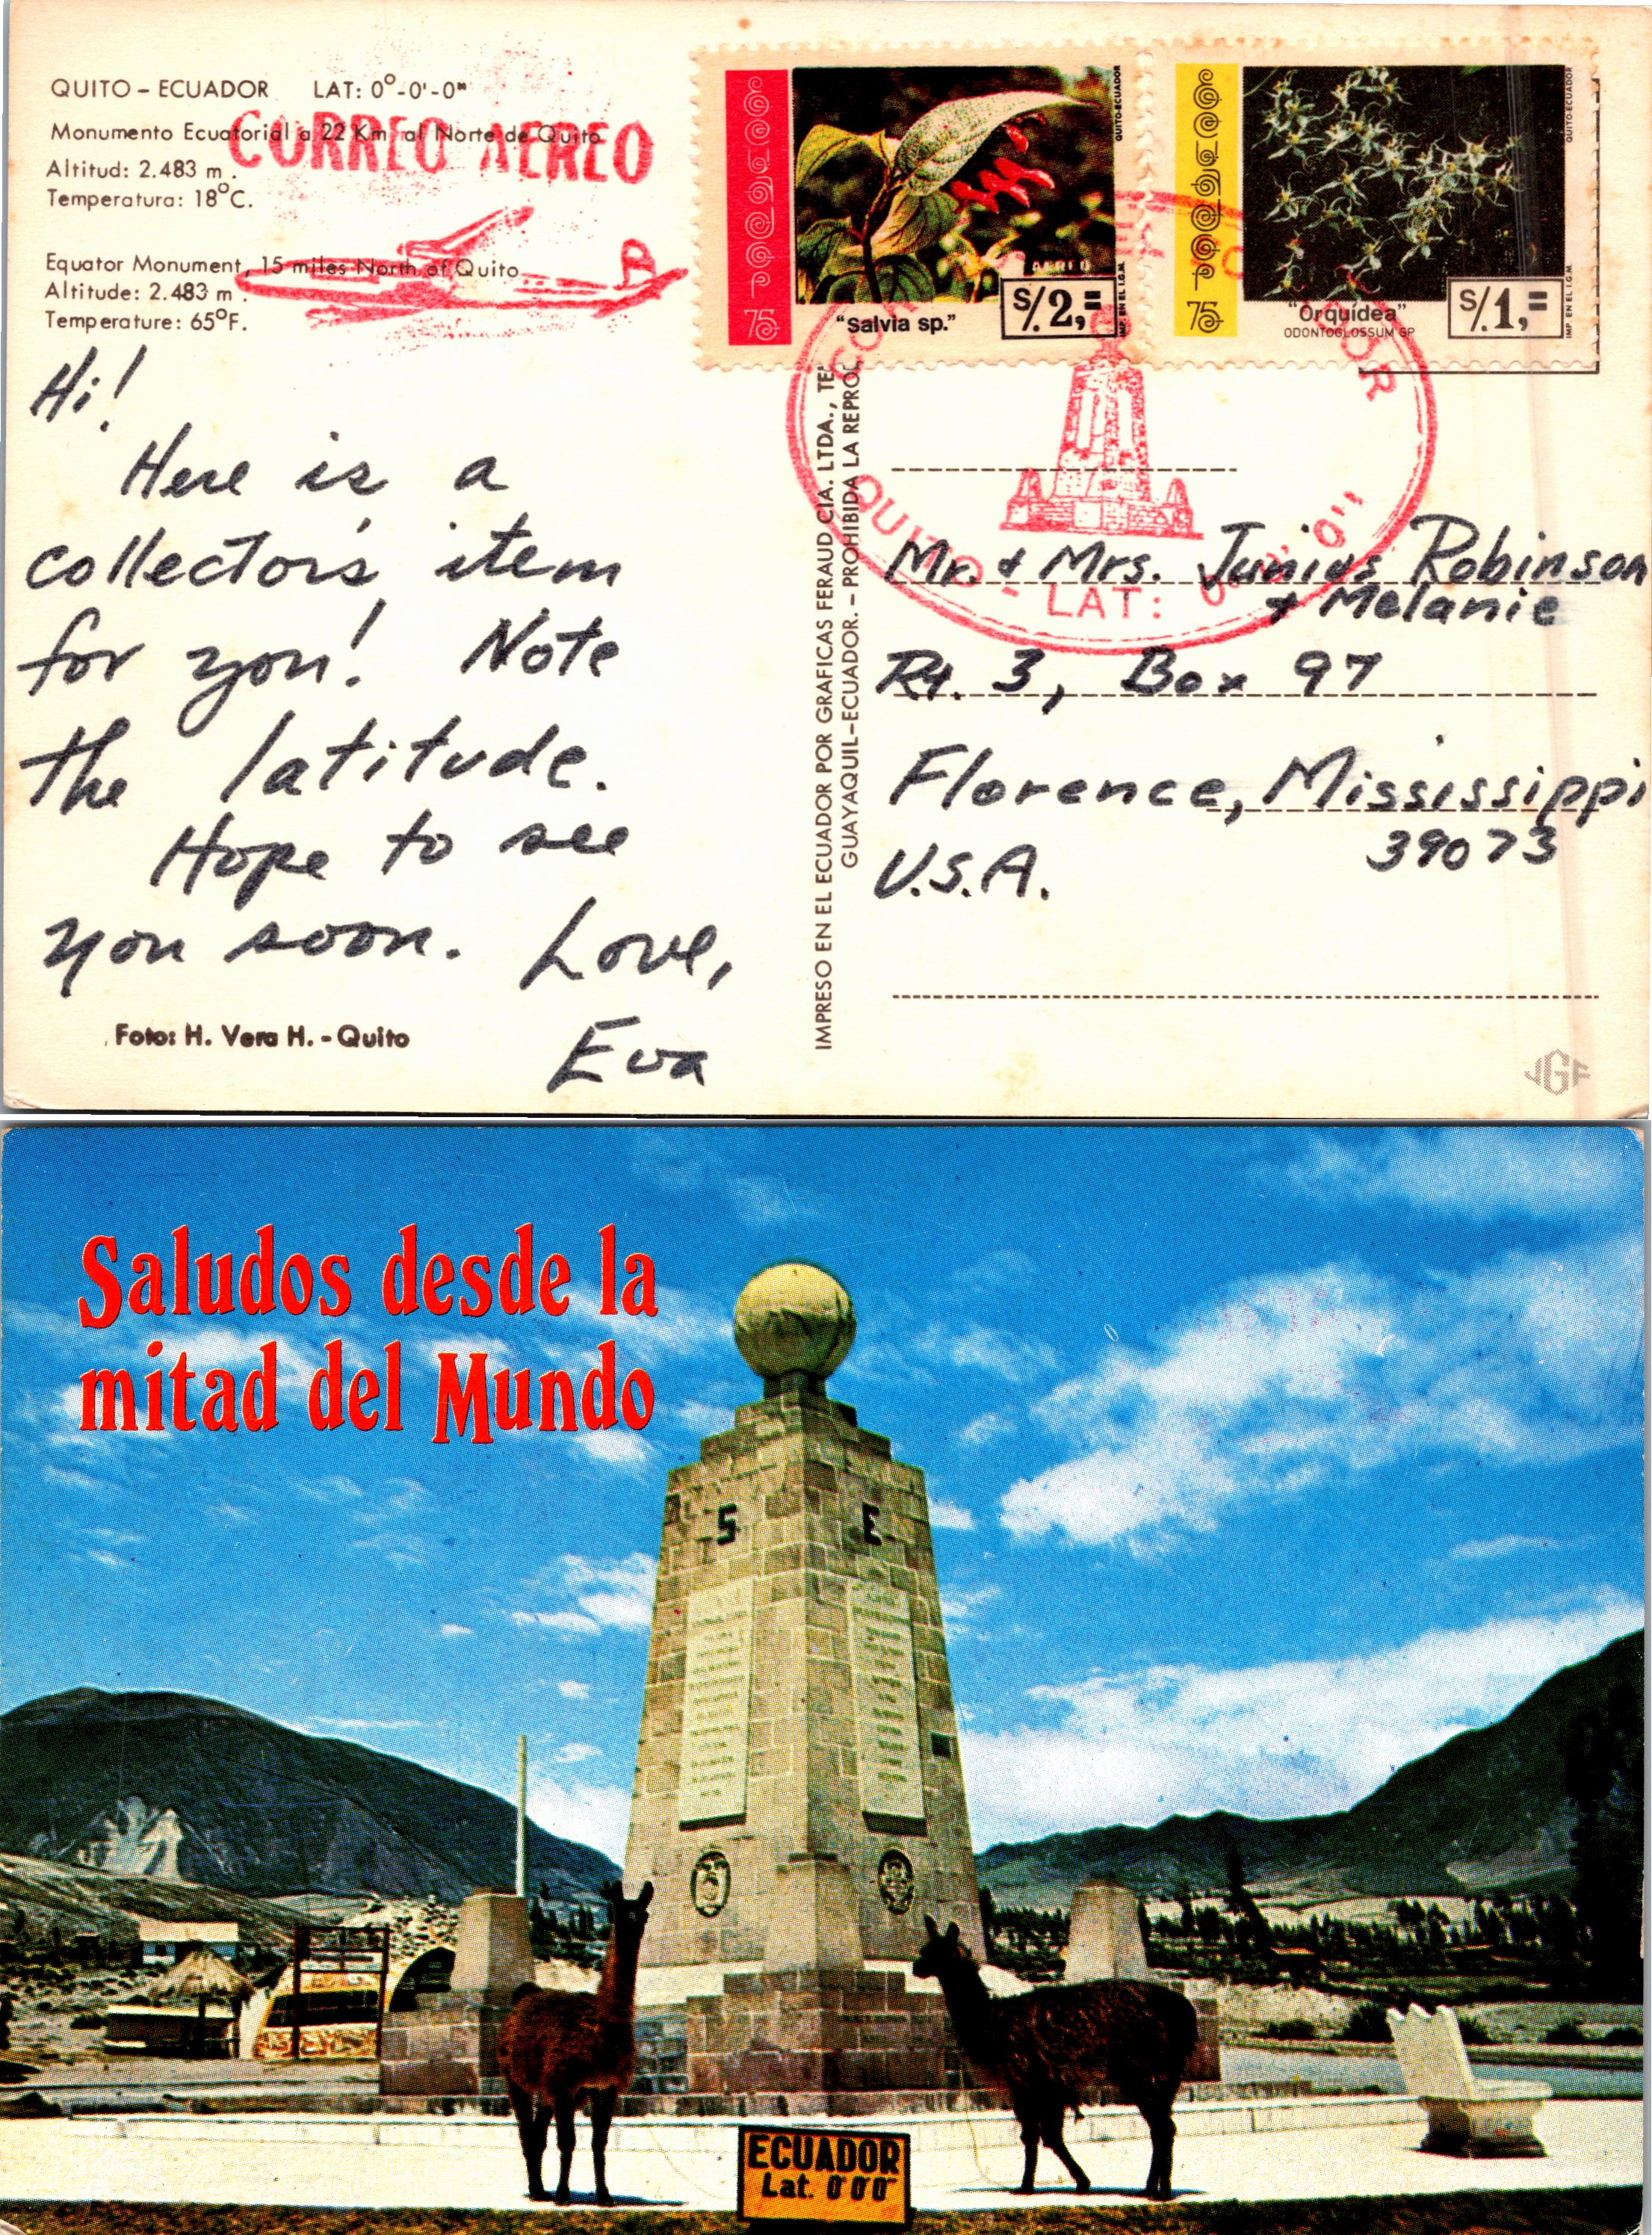 QUITO – ECUADOR LAT: 0°-0'-0"
Monumento Ecuatorial a 22 Km. al Norte de Quito
Altitud: 2.483 m .
Temperatura: 18°C.
Equator Monument, 15 miles North of Quito
Altitude: 2.483 m .
Temperature: 65°F.
CORREO AEREO
Hi!
Here is a
collector's item
for you! Note
the latitude.
Hope to see
you soon. Love,
Eva
Foto: H. Vera H. - Quito
IMPRESO EN EL ECUADOR POR GRAFICAS FERAUD CIA. LTDA., TE
GUAYAQUIL–ECUADOR. – PROHIBIDA LA REPROD
ecuador
75
QUITO-ECUADOR
AEREO
"Salvia sp."
S/. 2,=
IMP. EN EL I.G.M.
ecuador
75
QUITO-ECUADOR
"Orquídea"
ODONTOGLOSSUM SP
S/. 1,=
IMP. EN EL I.G.M.
QUITO - LAT: 0° 0' 0"
Mr. & Mrs. Junius Robinson
& Melanie
Rt. 3, Box 97
Florence, Mississippi
39073
U.S.A.
JGF
Saludos desde la
mitad del Mundo
S E
ECUADOR
Lat. 0°0'0"